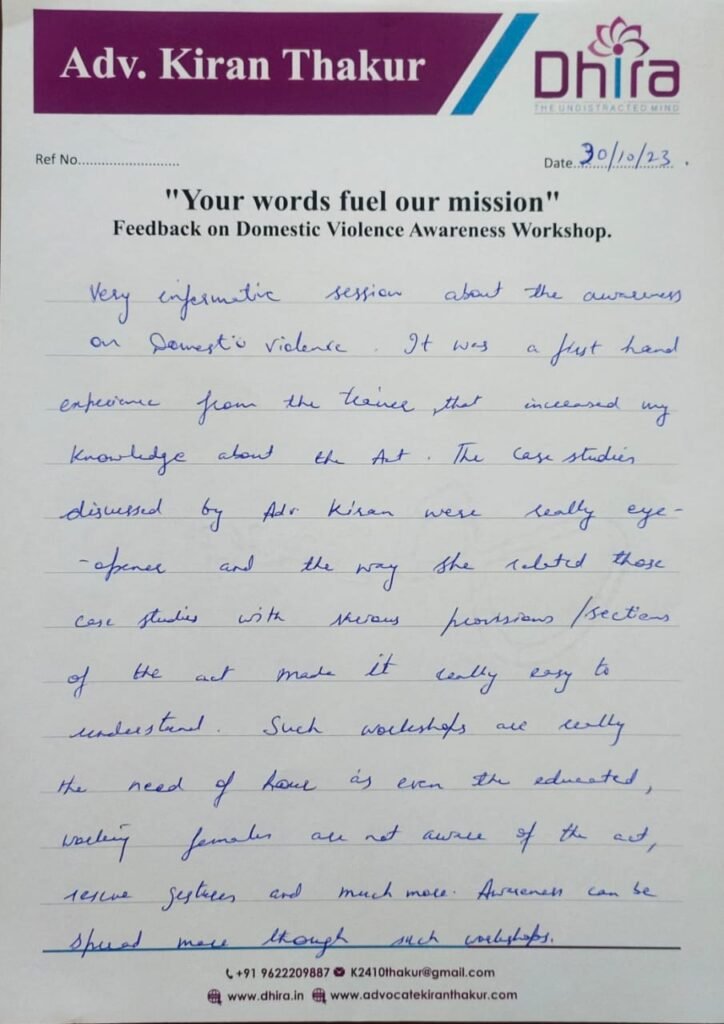 Adv. Kiran Thakur
Dhira
THE UNDISTRACTED MIND
Ref No..........................
Date 30/10/23 .
"Your words fuel our mission"
Feedback on Domestic Violence Awareness Workshop.
Very informatic session about the awareness
on Domestic violence . It was a first hand
experience from the trainer , that increased my
knowledge about the Act . The case studies
discussed by Adv Kiran were really eye-
-opener and the way she related those
case studies with various provisions /sections
of the act made it really easy to
understand . Such workshops are really
the need of hour as even the educated,
working females are not aware of the act,
rescue gestures and much more. Awareness can be
spread more though such workshops.
+91 9622209887 K2410thakur@gmail.com
www.dhira.in www.advocatekiranthakur.com